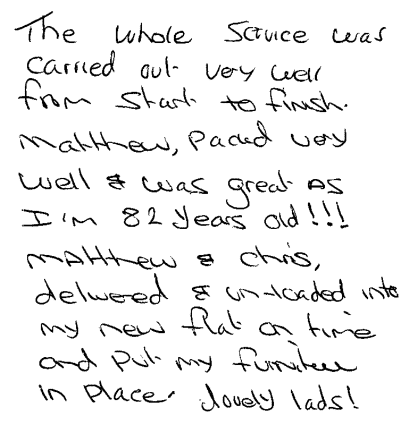 The whole Service was
carried out very well
from start to finish.
Matthew, Packed very
well & was great as
I'm 82 years old!!!
Matthew & Chris,
delivered & un-loaded into
my new flat on time
and put my furniture
in place. lovely lads!